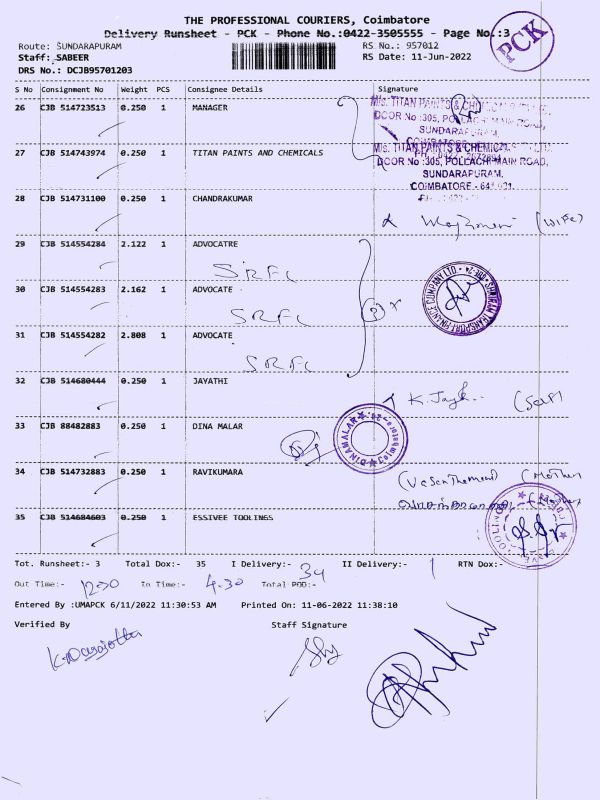 THE PROFESSIONAL COURIERS, Coimbatore
Delivery Runsheet - PCK - Phone No.:0422-3505555 - Page No.:3
PCK
Route: SUNDARAPURAM
RS No.: 957012
Staff: SABEER
RS Date: 11-Jun-2022
DRS No.: DCJB95701203
S No Consignment No Weight PCS Consignee Details Signature
26 CJB 514723513 0.250 1 MANAGER
M/s. TITAN PAINTS &
DOOR No :305, POLLACHI MAIN ROAD,
SUNDARAPURAM,
27 CJB 514743974 0.250 1 TITAN PAINTS AND CHEMICALS
M/s. TITAN PAINTS & CHEMICALS
DOOR No :305, POLLACHI MAIN ROAD,
SUNDARAPURAM,
COIMBATORE -
28 CJB 514731100 0.250 1 CHANDRAKUMAR
(wife)
29 CJB 514554284 2.122 1 ADVOCATRE
SRFC
30 CJB 514554283 2.162 1 ADVOCATE
SRFC
SHRIRAM TRANSPORT FINANCE COMPANY LTD
31 CJB 514554282 2.808 1 ADVOCATE
SRFC
32 CJB 514680444 0.250 1 JAYATHI
(Self)
33 CJB 88482883 0.250 1 DINA MALAR
DINAMALAR Coimbatore
34 CJB 514732883 0.250 1 RAVIKUMARA
(Mother
35 CJB 514684603 0.250 1 ESSIVEE TOOLINGS
Tot. Runsheet:- 3 Total Dox:- 35 I Delivery:- 34 II Delivery:- 1 RTN Dox:-
Out Time:- 12.30 In Time:- 4.30 Total POD:-
Entered By :UMAPCK 6/11/2022 11:30:53 AM Printed On: 11-06-2022 11:38:10
Verified By Staff Signature